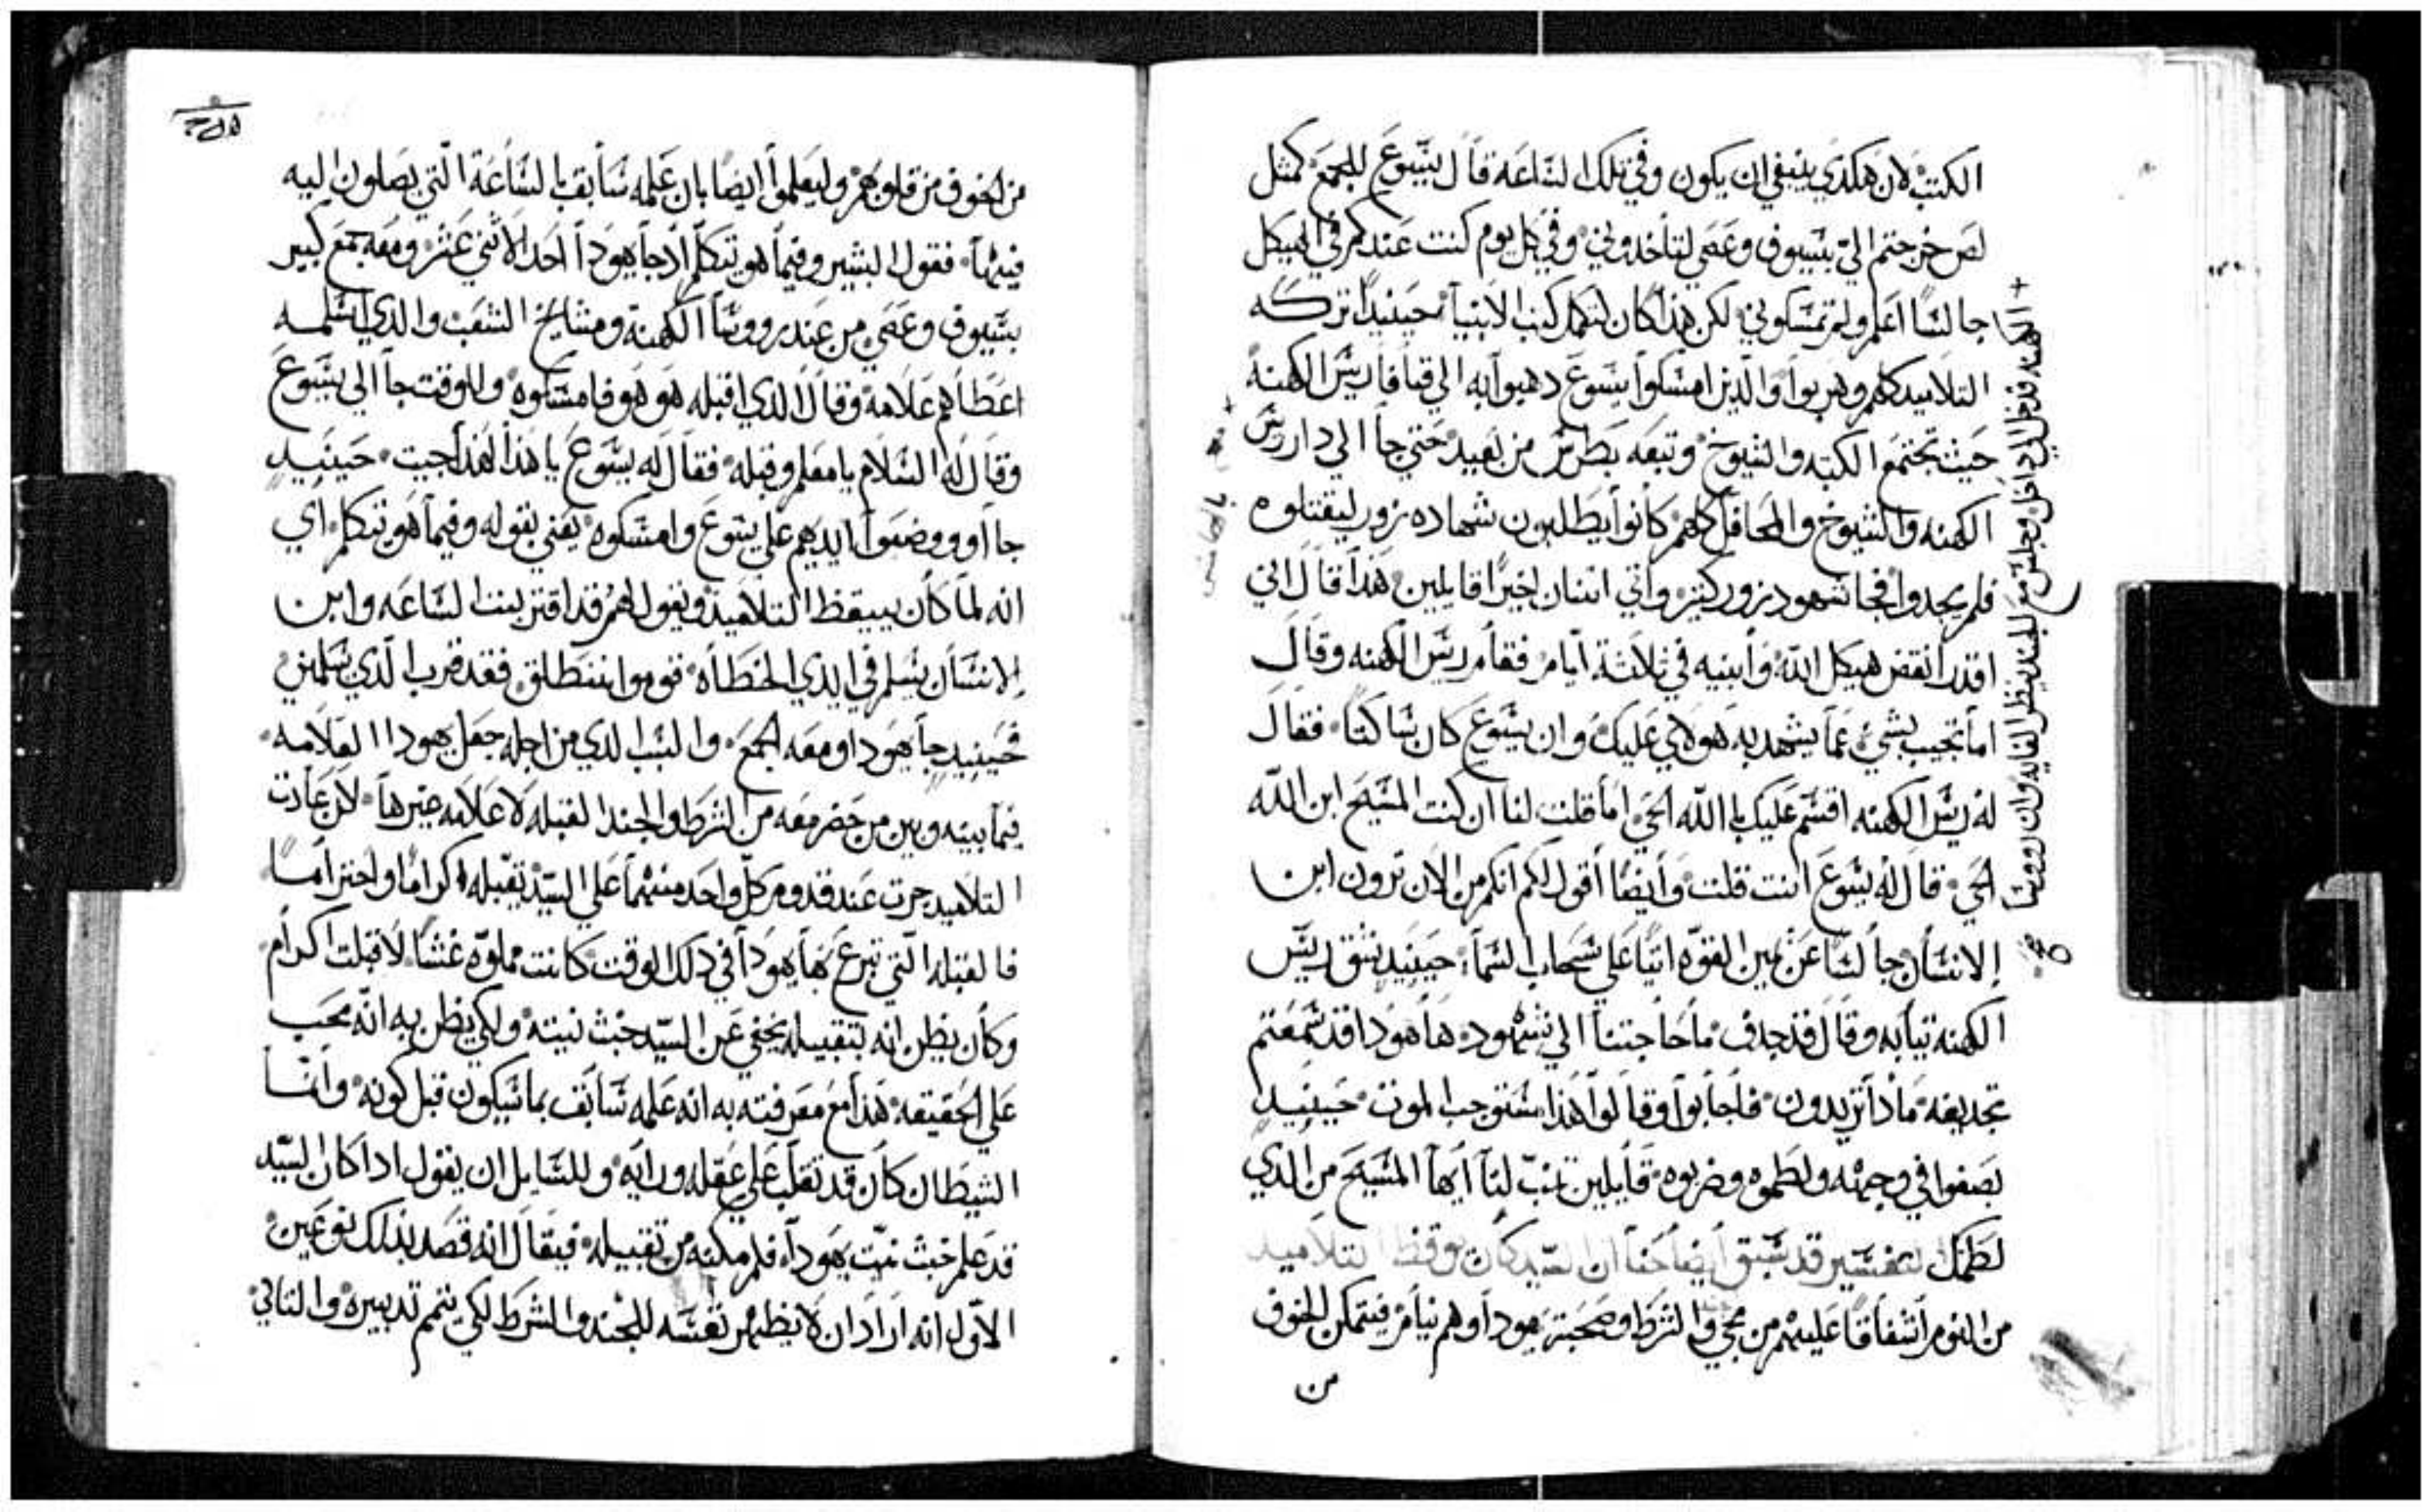 الكتب لان هكدي ينبغي ان يكون وفي تلك الساعه قال يسوع للجمع كمثل
لص خرجتم الي بسيوف وعصي لتأخدوني وفي كل يوم كنت عندكم في الهيكل
جالسا اعلم ولم تمسكوني لكن هذا كان لتكمل كتب الانبيا حينيدا تركه
التلاميد كلهم وهربوا والذين امسكوا يسوع دهبوا به الي قيافا ريس الكهنه
حيث تجتمع الكتبه والشيوخ وتبعه بطرس من بعيد حتي جا الي دار ريس
الكهنه والشيوخ والمحافل كلهم كانوا يطلبون شهاده زور ليقتلوه
فلم يجدوا فجا شهود زور كثير واتي اتنان اخيرا قايلين هذا قال اني
اقدر انقض هيكل الله وأبنيه في ثلاثة أيام فقام ريس الكهنه وقال
اما تجيب بشي عما يشهد به هولاي عليك وان يسوع كان ساكتا فقال
له ريس الكهنه اقسم عليك بالله الحي اما قلت لنا ان كنت المسيح ابن الله
الحي قال له يسوع انت قلت وأيضا أقول لكم انكم من الان ترون ابن
الانسان جالسا عن يمين القوه اتيا علي سحاب السما حينيد شق ريس
الكهنه تيابه وقال قد جدف ما حاجتنا الي شهود ها هودا قد سمعتم
تجديفه مادا تريدون فاجابوا وقالوا هذا مستوجب الموت حينيد
بصقوا في وجهه ولطموه وضربوه قايلين تنب لنا أيها المسيح من الدي
لطمك التفسير قد سبق أيضا ان السيد كان يوقظ التلاميد
من النوم اشفاقا عليهم من مجي الشرط وصحبة يهودا وهم نيام فيتمكن الخوف
من
الكهنه فدخل الي داخل وجلس مع الجند ينظر الغايه وان روسا
من الخوف من قلوبهم وليعلموا ايضا بان علمه سابق بالساعة التي يصلون اليه
فيها فقول البشير وفيما هو يتكلم اد جا يهودا احد الاثني عشر ومعه جمع كبير
بسيوف وعصي من عند رووسا الكهنة ومشايخ الشعب والدي اسلمه
اعطاهم علامة وقال الدي اقبله هو هو فامسكوه وللوقت جا الي يسوع
وقال له السلام يا معلم وقبله فقال له يسوع يا هذا لهذا جيت حينيد
جااو ووضعوا ايديهم علي يسوع وامسكوه يعني بقوله وفيما هو يتكلم اي
انه لما كان ييقظ التلاميد ويقول لهم قد اقتربت الساعه وابن
الانسان يسلم في ايدي الخطاه قوموا ننطلق فقد قرب الذي يسلمني
فحينيد جا يهودا ومعه الجمع والسبب الدي من اجله جعل يهودا العلامه
فيما بينه وبين من حضر معه من الشرط والجند القبله لا علامه غيرها لان عادت
التلاميد جرت عند قدوم كل واحد منهما علي السيد تقبيله اكراما واحتراما
فالقبله التي تبرع بها يهودا في دلك الوقت كانت مملوه غشا لا قبلت اكرام
وكان يظن انه بتقبيله يخفي عن السيد خبث نيته ولكي يظن به انه محب
علي الحقيقه هذا مع معرفته به انه علمه سابق بما سيكون قبل كونه وانما
الشيطان كان قد تغلب علي عقله ورايه وللسايل ان يقول ادا كان السيد
قد علم خبث نيت يهودا فلم مكنه من تقبيله فيقال انه قصد بدلك نوعين
الاول انه اراد ان لا يظهر نفسه للجند والشرط لكي يتم تدبيره والتاني